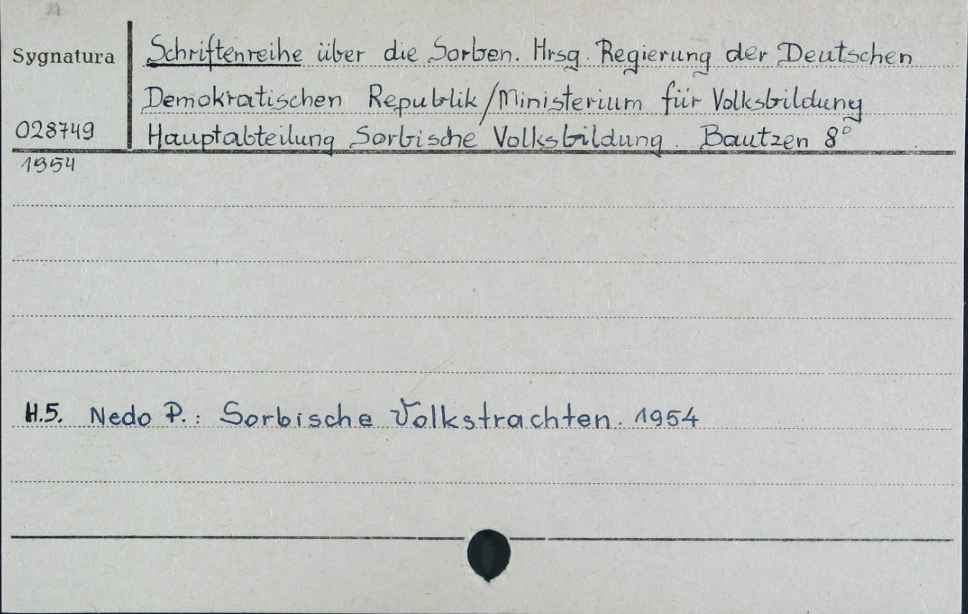 Sygnatura
028749
1954
Schriftenreihe über die Sorben. Hrsg. Regierung der Deutschen
Demokratischen Republik/Ministerium für Volksbildung
Hauptabteilung Sorbische Volksbildung. Bautzen 8°
H.5. Nedo P.: Sorbische Volkstrachten. 1954